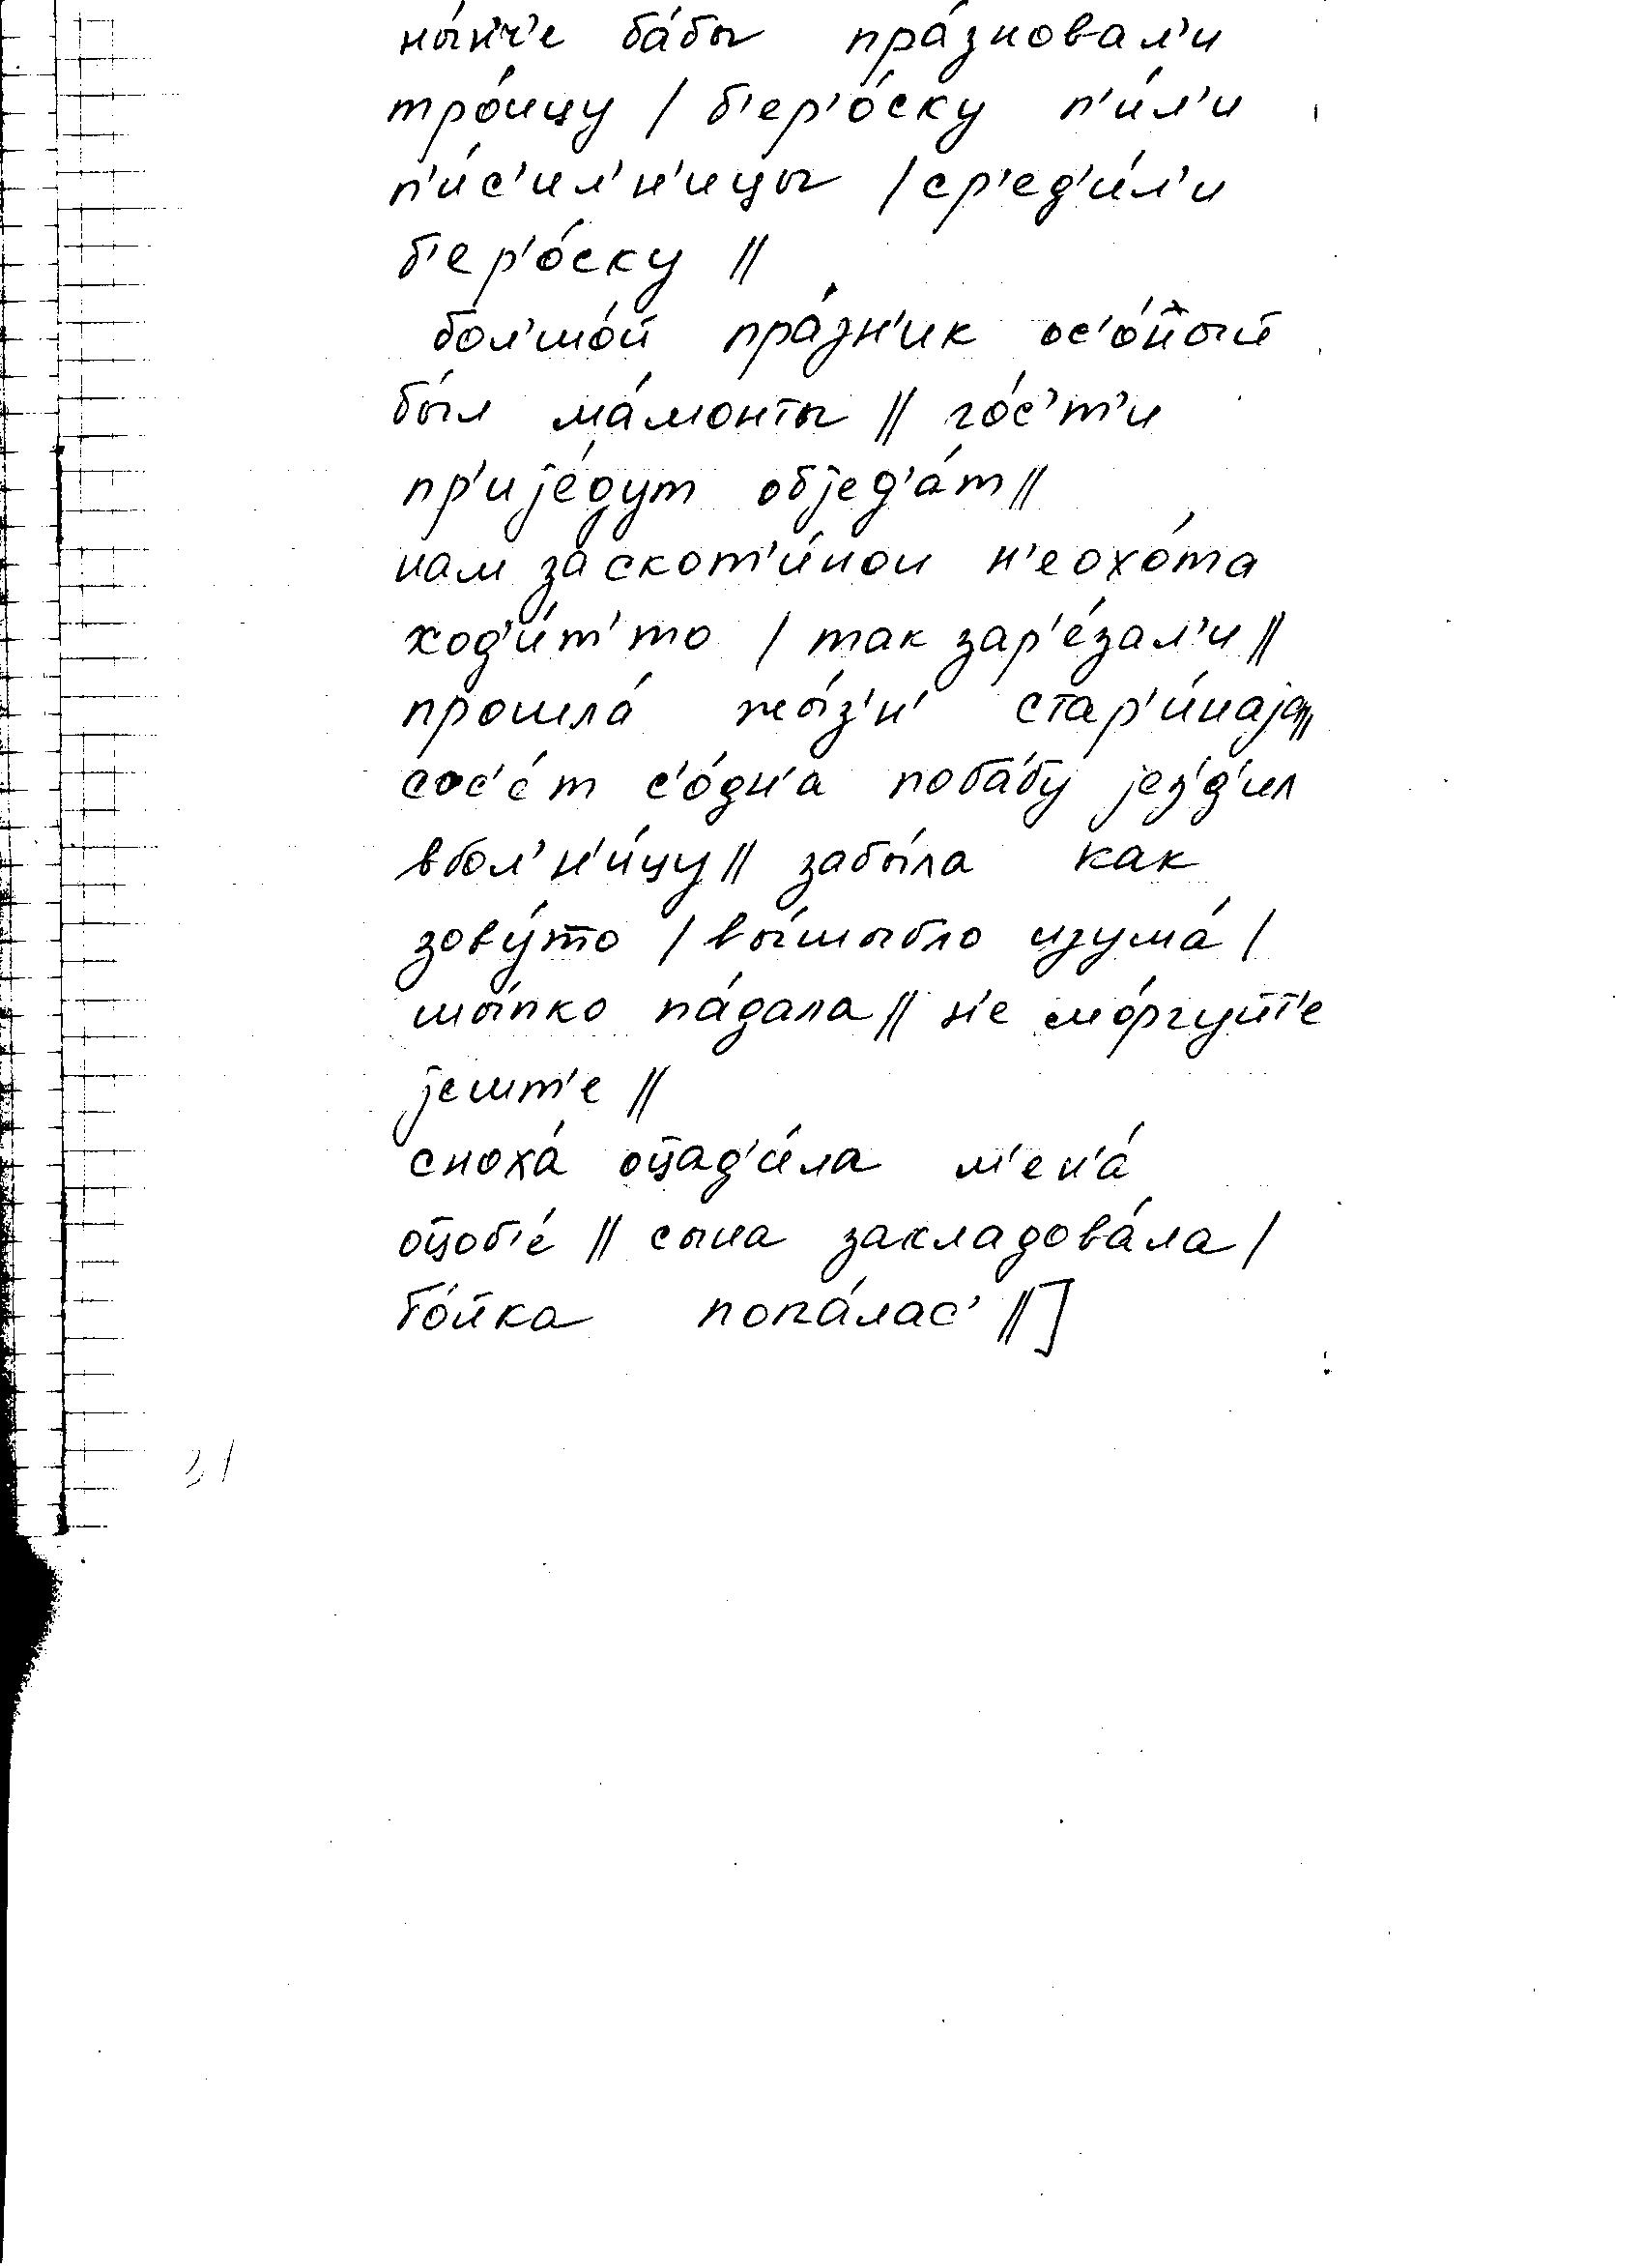 ны́н'ч'е ба́бы пра́зновал'и
тро́ицу / б'ер'о́ску п'и́л'и
п'и́с'ил'н'ицы / ср'ед'и́л'и
б'ер'о́ску //
бол'шо́й пра́зн'ик ос'о́н̄ый
бы́л ма́монты // го́с'т'и
пр'ијéдут објед'а́т //
нам за скот'и́ной н'еохо́та
ход'и́т'то / так зар'е́зал'и //
прошла́ жы́з'н' стар'и́наја //
сос'е́т с'о́дн'а поба́бу јез'д'ил
вбол'н'и́цу // забы́ла как
зову́то / вы́шыбло изума́ /
шы́пко па́дала // н'е мо́ргуйт'е
јешт'е //
сноха́ оц̄ад'и́ла м'ен'а́
оц̄об'е́ // сына закладова́ла /
бо́йка попа́лас' // ]
31